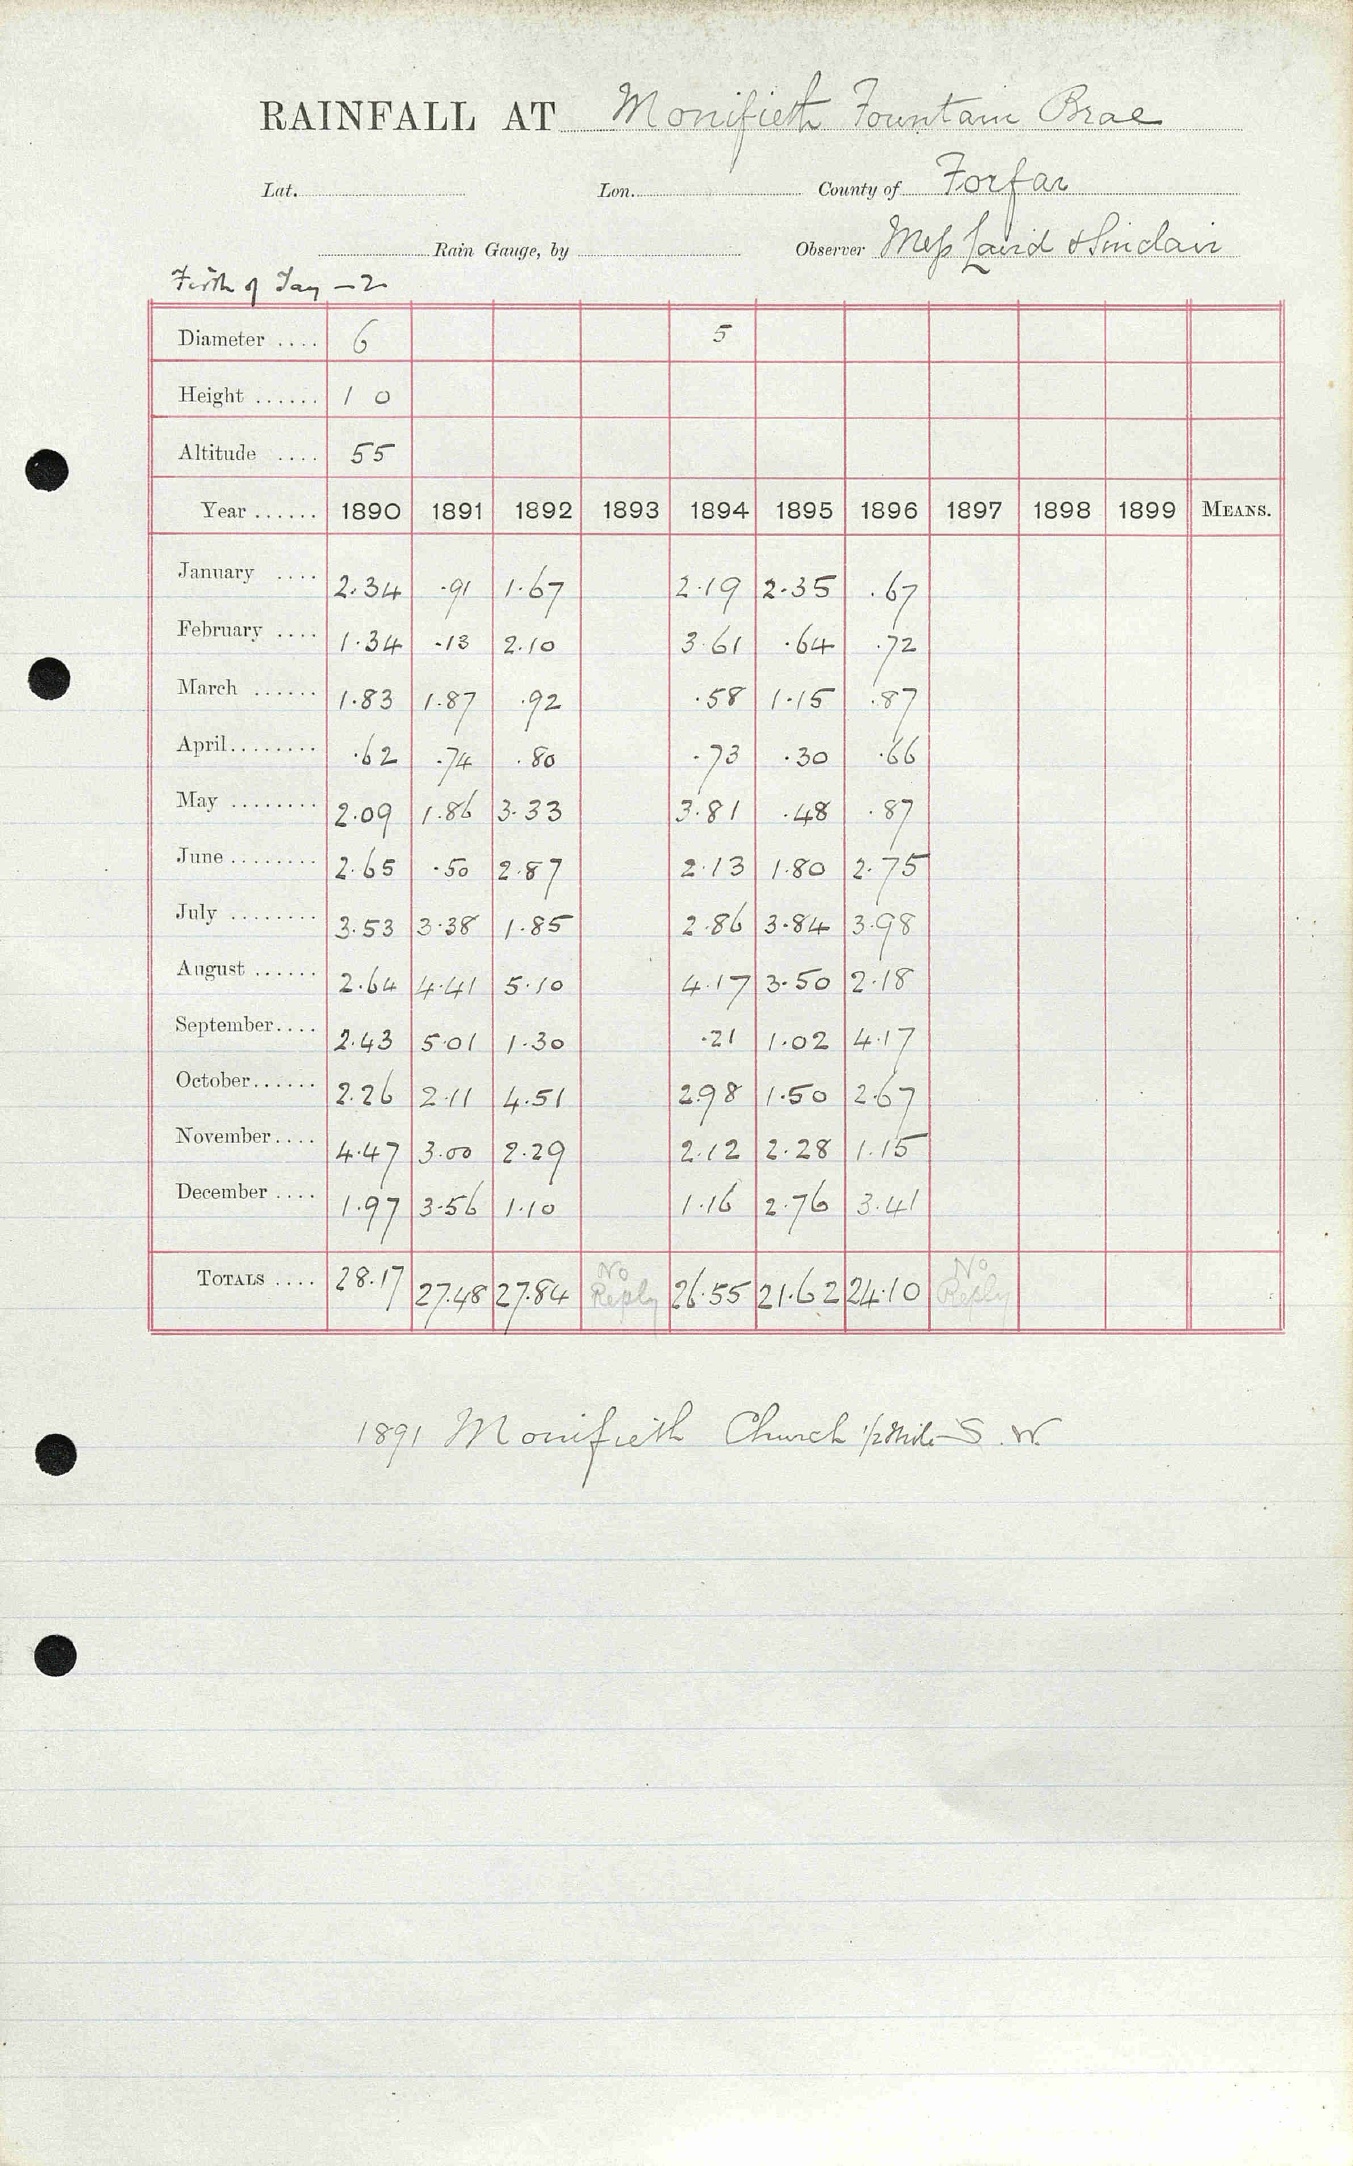 RAINFALL AT Monifieth Fountain Brae
Lat. Lon. County of Forfar
Rain Gauge, by Observer Mess Laird & Sinclair
Firth of Tay - 2
Diameter .... 6 5
Height ...... 1 0
Altitude .... 55
Year ...... 1890 1891 1892 1893 1894 1895 1896 1897 1898 1899 MEANS.
January .... 2.34 .91 1.67 2.19 2.35 .67
February .... 1.34 .13 2.10 3.61 .64 .72
March ...... 1.83 1.87 .92 .58 1.15 .87
April........ .62 .74 .80 .73 .30 .66
May ........ 2.09 1.86 3.33 3.81 .48 .87
June ........ 2.65 .50 2.87 2.13 1.80 2.75
July ........ 3.53 3.38 1.85 2.86 3.84 3.98
August ...... 2.64 4.41 5.10 4.17 3.50 2.18
September.... 2.43 5.01 1.30 .21 1.02 4.17
October...... 2.26 2.11 4.51 2.98 1.50 2.67
November.... 4.47 3.00 2.29 2.12 2.28 1.15
December .... 1.97 3.56 1.10 1.16 2.76 3.41
TOTALS .... 28.17 27.48 27.84 No Reply 26.55 21.62 24.10 No Reply
1891 Monifieth Church 1/2 Mile S.W.